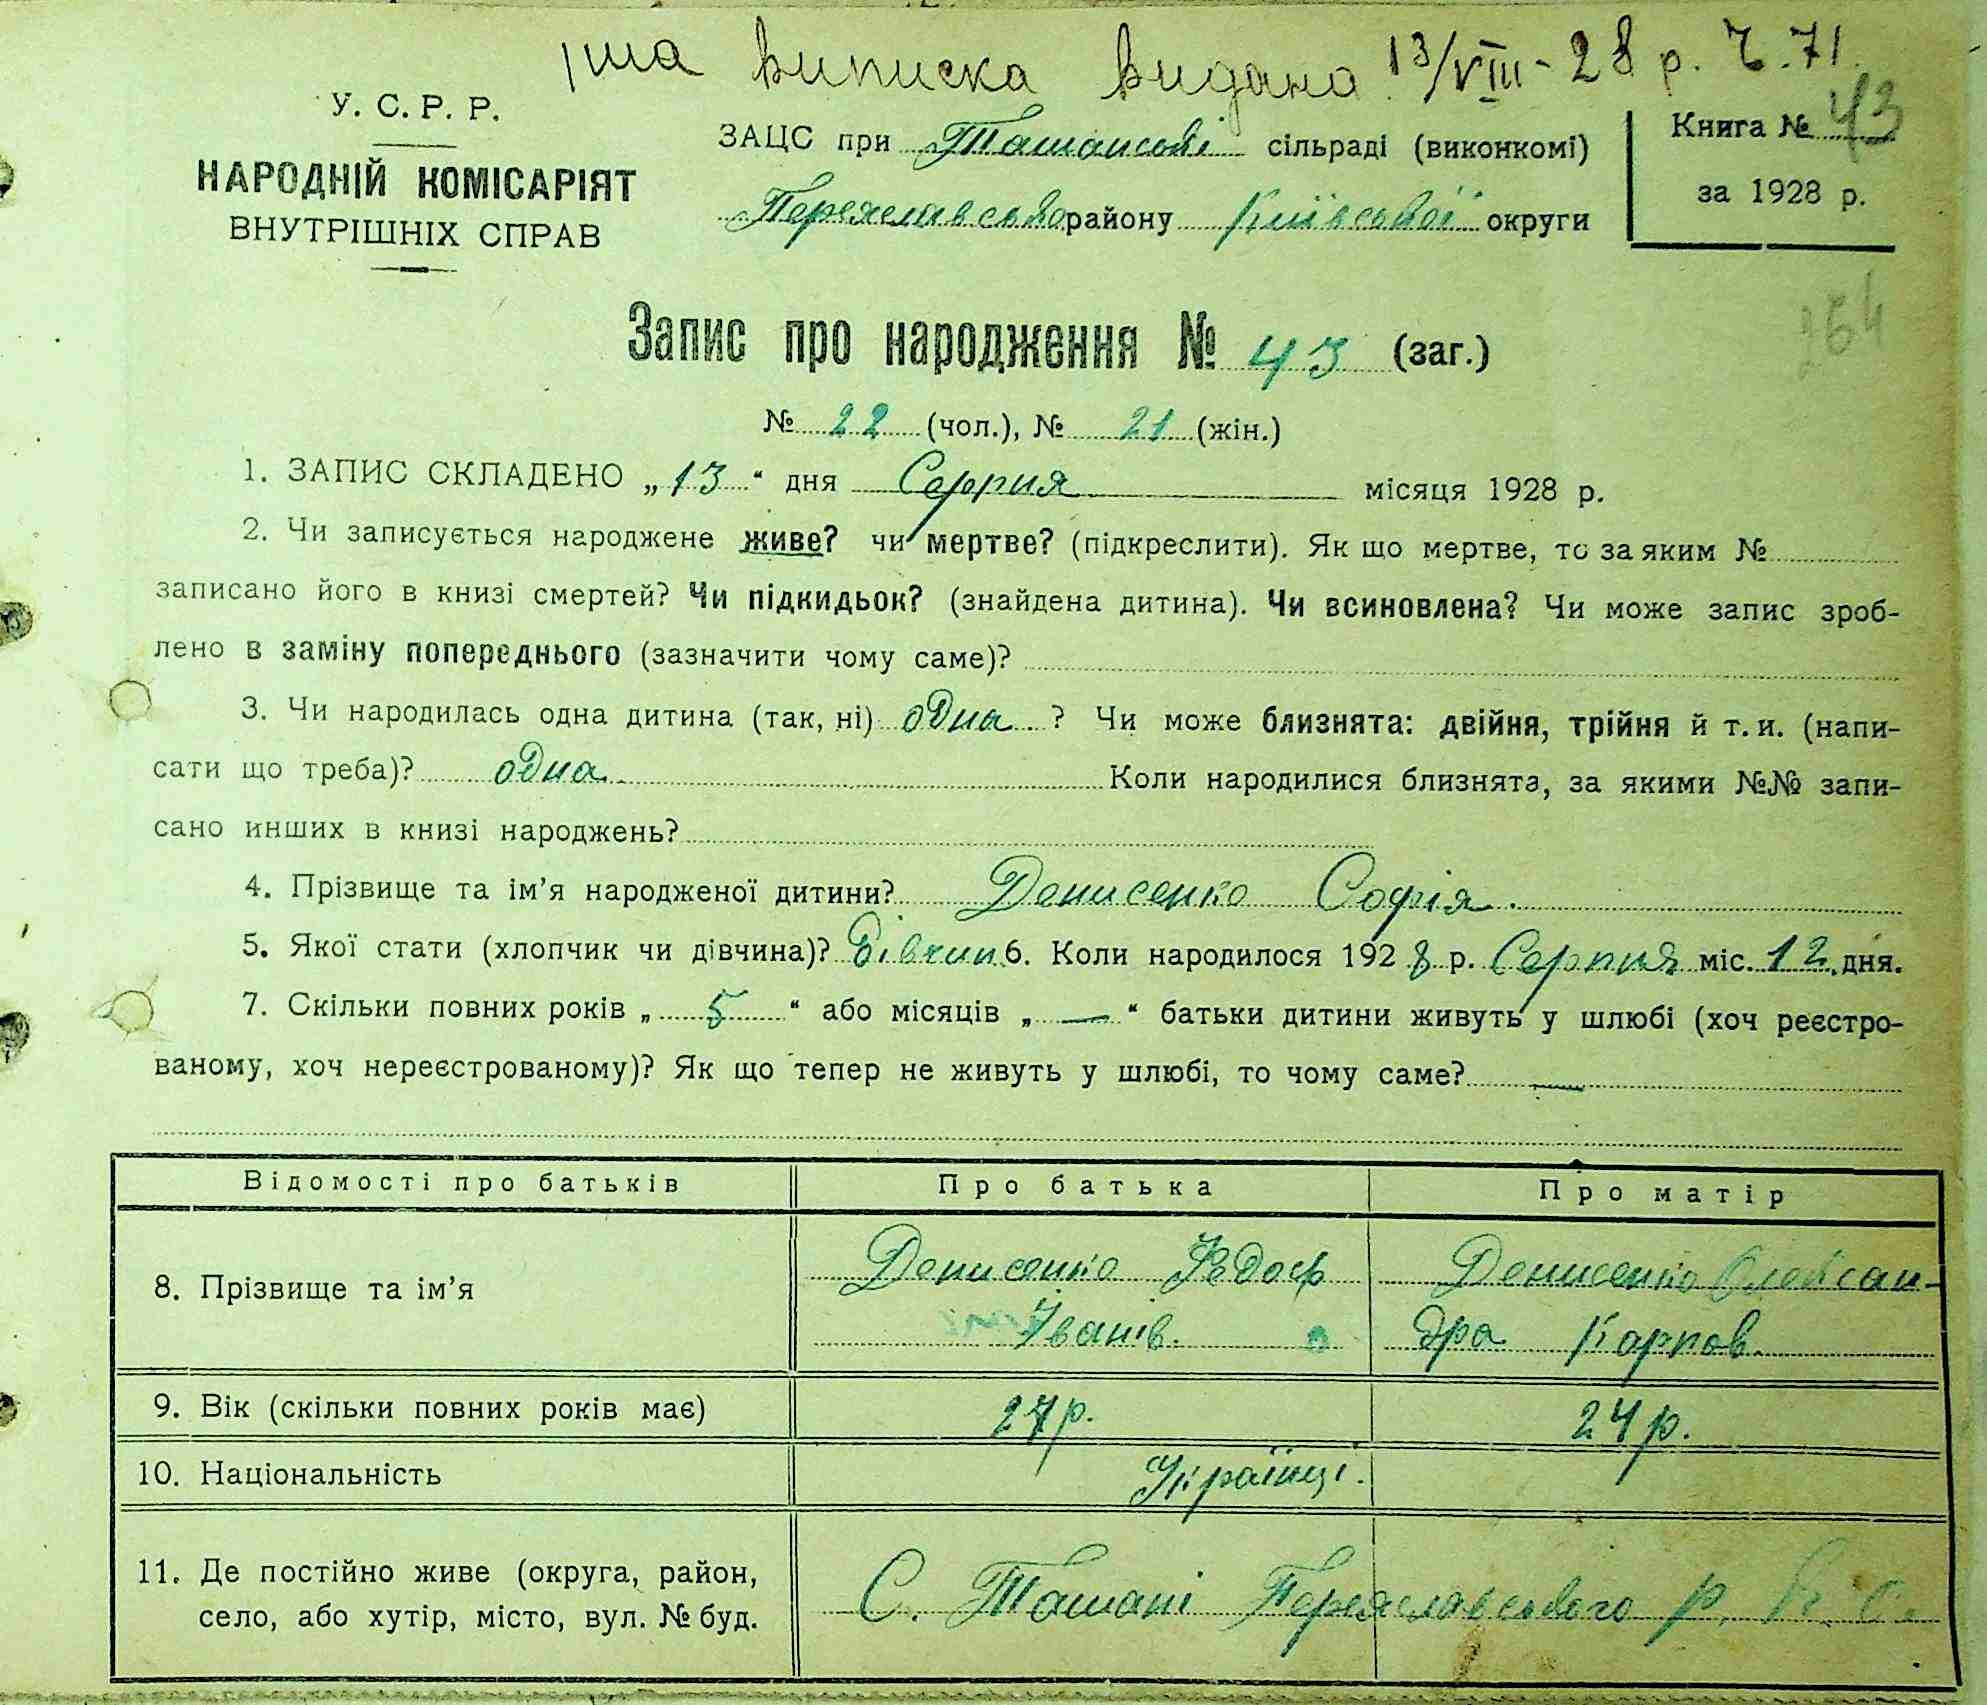 1ша виписка видана 13/VIII - 28 р. Ч. 71.
У. С. Р. Р.
НАРОДНІЙ КОМІСАРІЯТ
ВНУТРІШНІХ СПРАВ
ЗАЦС при Ташанській сільраді (виконкомі)
Переяславського району Київської округи
Книга № 43
за 1928 р.
264
Запис про народження № 43 (заг.)
№ 22 (чол.), № 21 (жін.)
1. ЗАПИС СКЛАДЕНО „13“ дня Серпня місяця 1928 р.
2. Чи записується народжене живе? чи мертве? (підкреслити). Як що мертве, то за яким №
записано його в книзі смертей? Чи підкидьок? (знайдена дитина). Чи всиновлена? Чи може запис зроб-
лено в заміну попереднього (зазначити чому саме)?
3. Чи народилась одна дитина (так, ні) одна ? Чи може близнята: двійня, трійня й т. и. (напи-
сати що треба)? одна Коли народилися близнята, за якими №№ запи-
сано инших в книзі народжень?
4. Прізвище та ім’я народженої дитини? Денисенко Софія.
5. Якої стати (хлопчик чи дівчина)? Дівчин 6. Коли народилося 1928 р. Серпня міс. 12 дня.
7. Скільки повних років „ 5 “ або місяців „ — “ батьки дитини живуть у шлюбі (хоч реєстро-
ваному, хоч нереєстрованому)? Як що тепер не живуть у шлюбі, то чому саме? —
Відомості про батьків Про батька Про матір
8. Прізвище та ім’я Денисенко Федось Денисенко Олексан-
Іванів. дра Карпов.
9. Вік (скільки повних років має) 27 р. 24 р.
10. Національність Українці.
11. Де постійно живе (округа, район,
село, або хутір, місто, вул. № буд.
С. Ташані Переяславського р. К. о.